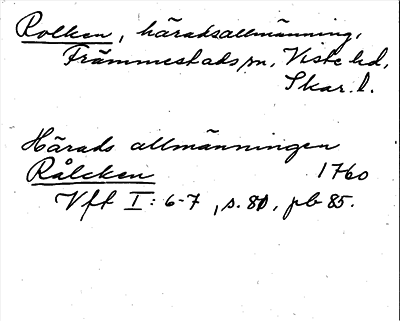 Rolken, häradsallmänning,
Främmestads sn, Viste hd,
Skar. l.
Härads allmänningen
Rålcken 1760
Vft I: 6-7, s. 80, pb 85.